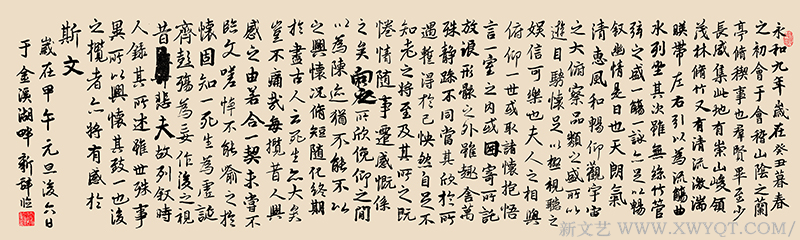 永和九年歲在癸丑暮春
之初會于會稽山陰之蘭
亭脩稧事也羣賢畢至少
長咸集此地有崇山峻領
茂林脩竹又有清流激湍
暎帶左右引以為流觴曲
水列坐其次雖無絲竹管
弦之盛一觴一詠亦足以暢
叙幽情是日也天朗氣
清惠風和暢仰觀宇宙
之大俯察品類之盛所以
遊目騁懷足以極視聽之
娱信可樂也夫人之相與
俯仰一世或取諸懷抱悟
言一室之内或因寄所託
放浪形骸之外雖趣舍萬
殊靜躁不同當其欣於所
遇暫得於己怏然自足不
知老之將至及其所之既
惓情随事遷感慨係
之矣向之所欣俛仰之間
以為陳迹猶不能不以
之興懷況脩短随化終期
於盡古人云死生亦大矣
豈不痛哉每攬昔人興
感之由若合一契未嘗不
臨文嗟悼不能喻之於
懷固知一死生為虛誕
齊彭殤為妄作後之視
昔 夫故列叙時
人録其所述雖世殊事
異所以興懷其致一也後
之攬者亦將有感於
斯文
歲在甲午元旦後六日
于金溪湖畔新 臨
新文艺 WWW.XWYQT.COM